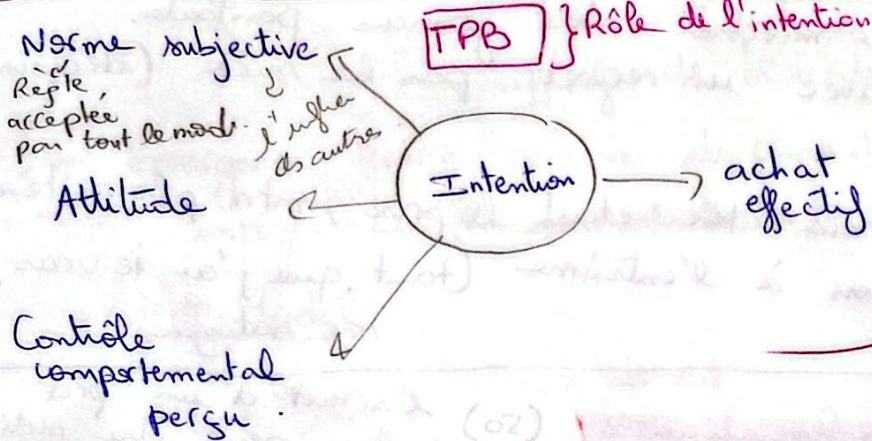 TPB } Rôle de l'intention
Norme subjective
Règle
acceptée
par tout le mond.
l'influen
des autres
Attitude
Intention
achat
effectif
Contrôle
comportemental
perçu.